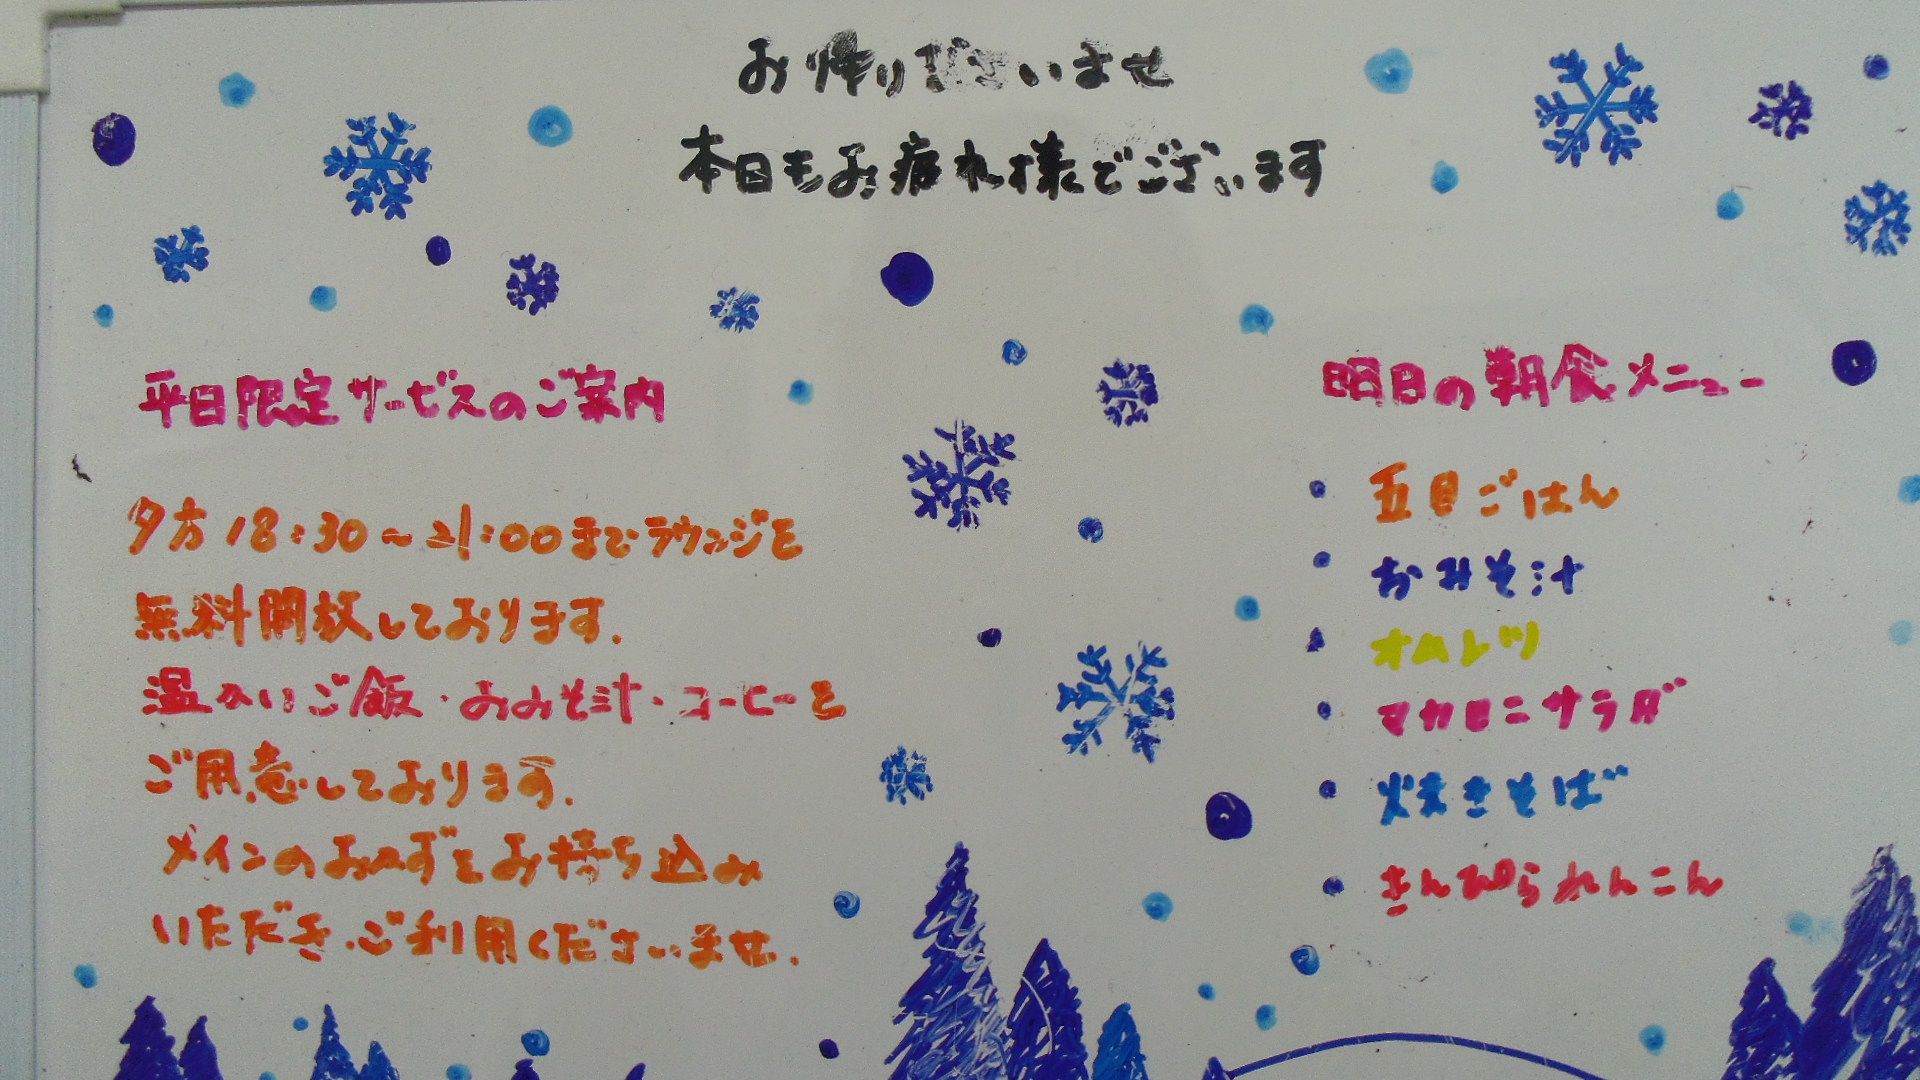 お帰りなさいませ
本日もお疲れ様でございます
平日限定サービスのご案内
夕方18:30～21:00までラウンジを
無料開放しております.
温かいご飯・おみそ汁・コーヒーを
ご用意しております.
メインのおかずをお持ち込み
いただき、ご利用くださいませ.
明日の朝食メニュー
・五目ごはん
・おみそ汁
・オムレツ
・マカロニサラダ
・焼きそば
・きんぴられんこん